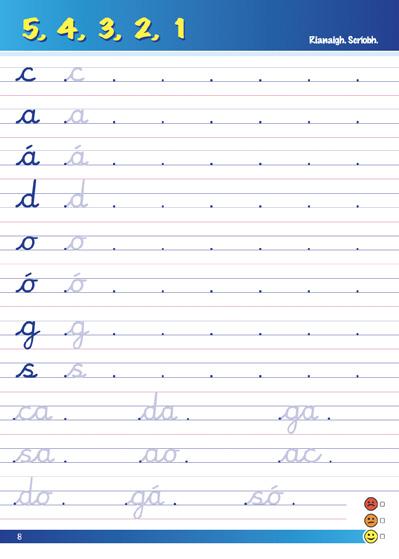 5, 4, 3, 2, 1
Rianaigh. Scríobh.
c c . . . . . .
a a . . . . . .
á á . . . . . .
d d . . . . . .
o o . . . . . .
ó ó . . . . . .
g g . . . . . .
s s . . . . . .
ca . da . ga .
sa . ao . ac .
do . gá . só .
8